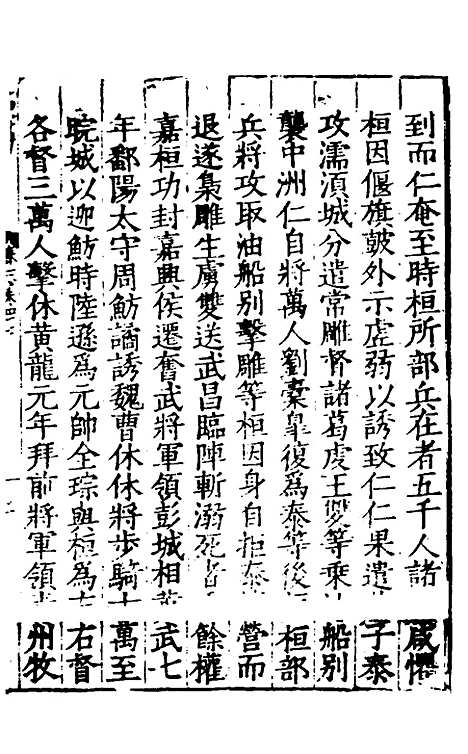 到而仁奄至時桓所部兵在者五千人諸咸懼
桓因偃旗皷外示虛弱以誘致仁仁果遣子泰
攻濡須城分遣常雕督諸葛虔王雙等乘船別
襲中洲仁自將萬人留橐臯復為泰等後桓部
兵將攻取油船別擊雕等桓因身自拒泰營而
退遂梟雕生虜雙送武昌臨陣斬溺死者餘權
嘉桓功封嘉興侯遷奮武將軍領彭城相黃武七
年鄱陽太守周魴譎誘魏曹休休將步騎十萬至
皖城以迎魴時陸遜為元帥全琮與桓為左右督
各督三萬人擊休黃龍元年拜前將軍領青州牧